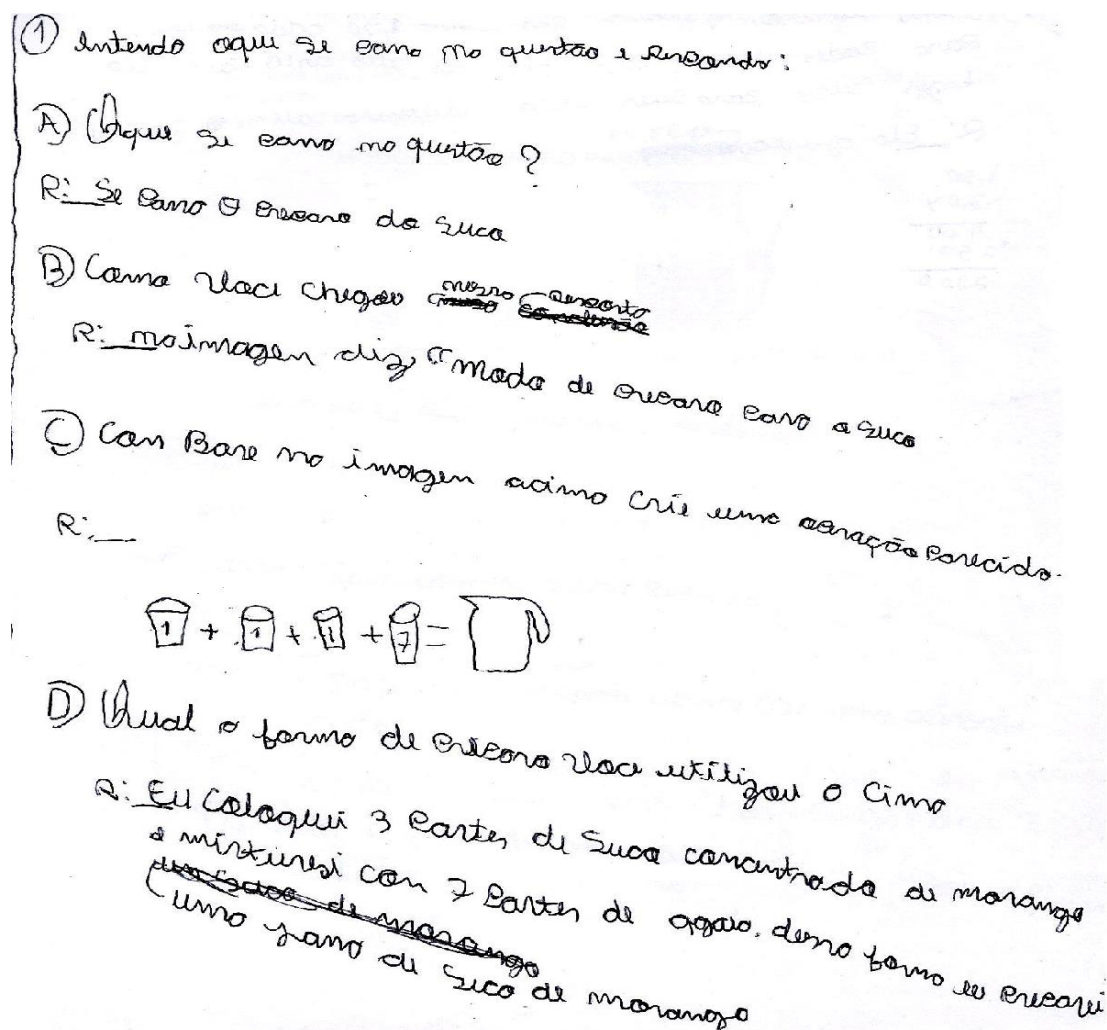 ① Intendo aqui se pano na questão e respando:
A) Oque se pano na questão?
R: Se pano o preparo do suca
B) Cama vaci chegou nesso resposta
R: na imagen diz, "mada de preparo paro a suco
C) Can Base na imagen acima crie uma opração parecida.
R:
1 + 1 + 1 + 7 =
D) Qual a forma de preparo vaci utilizou o cima
R: Eu caloqui 3 partes de suca cancentrada de morango
e misturei can 7 partes de agua, desso forma eu preparei
uma jarro de suco de morango